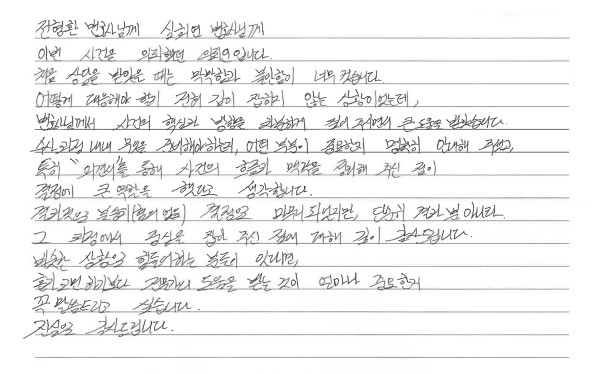 전형환 변호사님께 심희연 변호사님께
이번 사건을 의뢰했던 의뢰인입니다.
처음 상담을 받았을 때는 막막함과 불안함이 너무 컸습니다.
어떻게 대응해야 할지 전혀 감이 잡히지 않는 상황이었는데,
변호사님께서 사건의 핵심과 방향을 차분하게 짚어 주시면서 큰 도움을 받았습니다.
수사과정 내내 무엇을 준비해야하는지, 어떤 부분이 중요한지 명확히 안내해 주셨고,
특히 "의견서"를 통해 사건의 흐름과 맥락을 정리해 주신 점이
결정에 큰 역할을 했다고 생각합니다.
결과적으로 불송치(혐의 없음) 결정으로 마무리 되었지만, 단순히 결과 뿐 아니라,
그 과정에서 중심을 잡아 주신 점에 대해 깊이 감사드립니다.
비슷한 상황으로 힘들어하는 분들이 있다면,
혼자 고민 하기보다 전문가의 도움을 받는 것이 얼마나 중요한지
꼭 말씀드리고 싶습니다.
진심으로 감사드립니다.